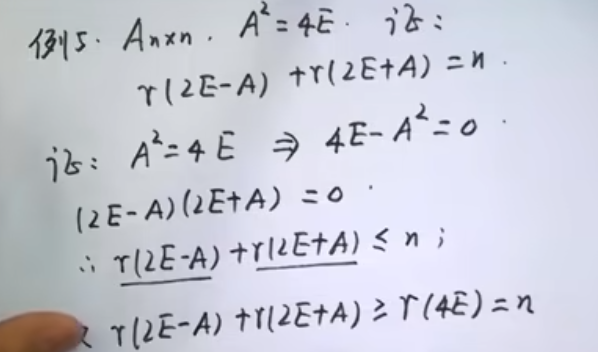 例5. Aₙₓₙ. A²=4E. 证:
r(2E-A)+r(2E+A)=n.
证: A²=4E ⇒ 4E-A²=0.
(2E-A)(2E+A)=0.
∴ r(2E-A)+r(2E+A)≤n;
r(2E-A)+r(2E+A)≥r(4E)=n